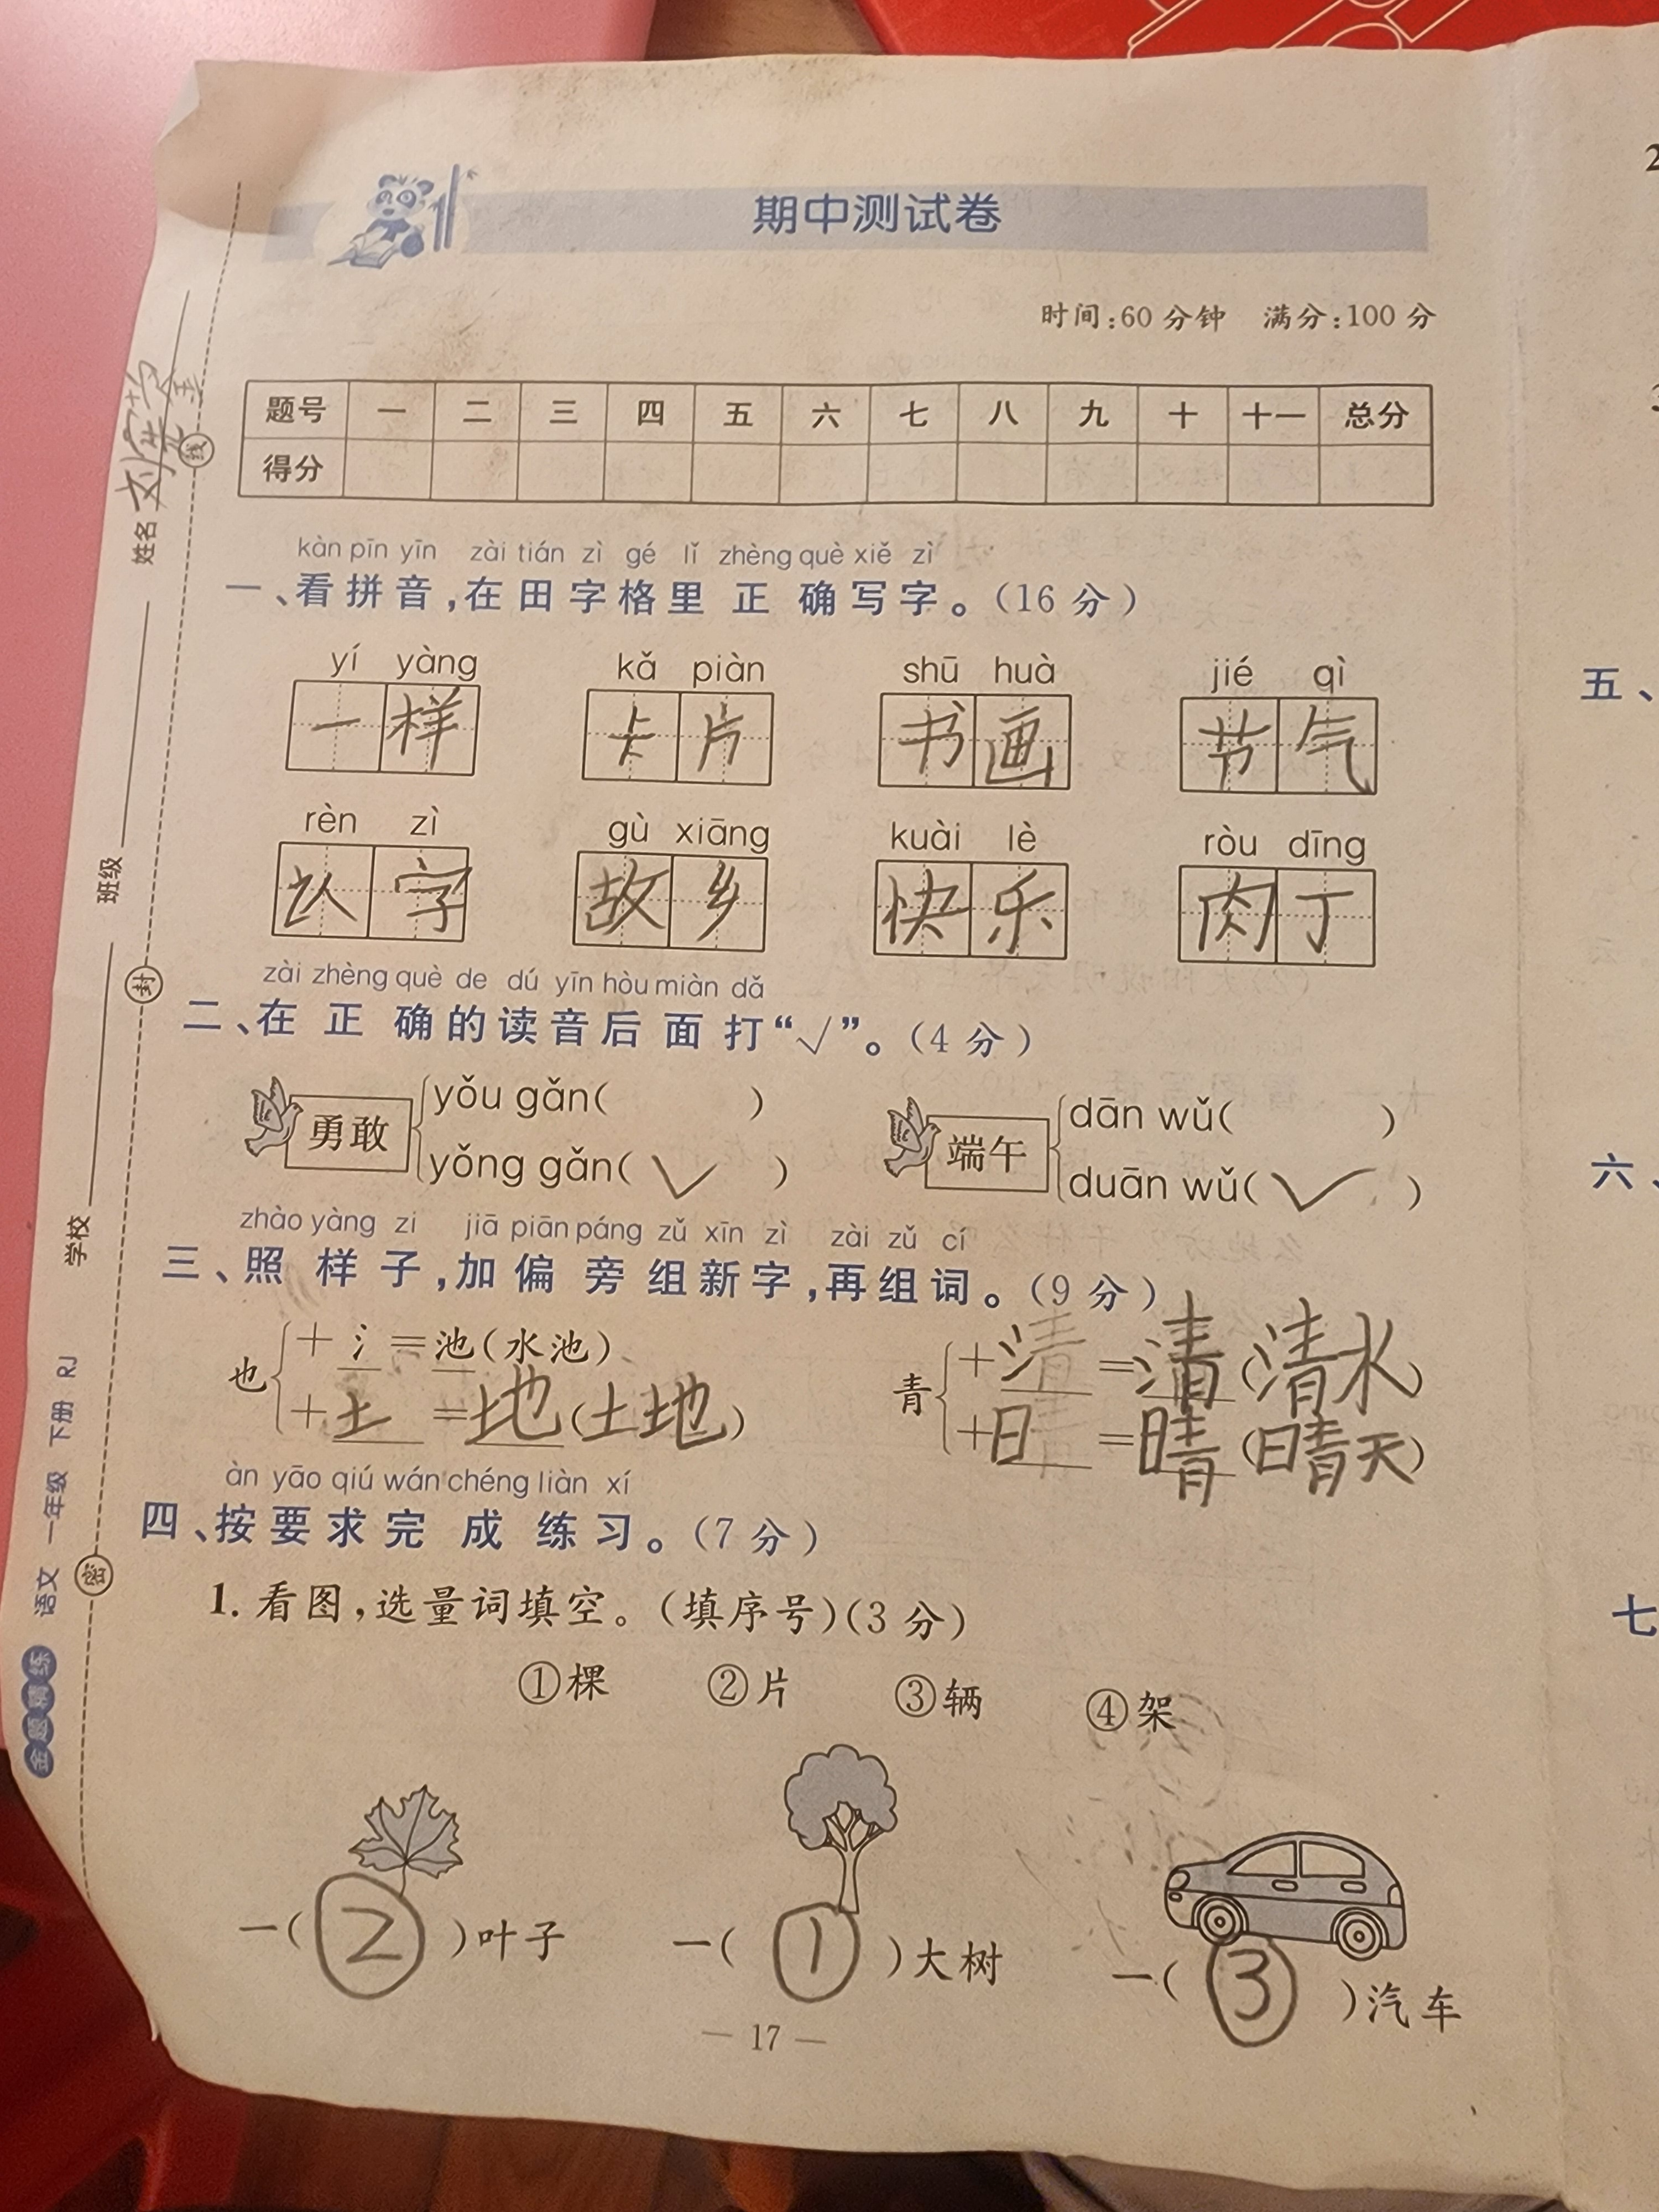 期中测试卷
时间:60 分钟 满分:100 分
题号 一 二 三 四 五 六 七 八 九 十 十一 总分
得分
kàn pīn yīn zài tián zì gé lǐ zhèng què xiě zì
一、看拼音,在田字格里正确写字。(16 分)
yí yàng kǎ piàn shū huà jié qì
一样 卡片 书画 节气
rèn zì gù xiāng kuài lè ròu dīng
认字 故乡 快乐 肉丁
zài zhèng què de dú yīn hòu miàn dǎ
二、在正确的读音后面打“√”。(4 分)
勇敢 yǒu gǎn( ) 端午 dān wǔ( )
yǒng gǎn( √ ) duān wǔ( √ )
zhào yàng zi jiā piān páng zǔ xīn zì zài zǔ cí
三、照样子,加偏旁组新字,再组词。(9 分)
也 +氵=池(水池) 青 +氵=清(清水)
+土=地(土地) +日=晴(晴天)
àn yāo qiú wán chéng liàn xí
四、按要求完成练习。(7 分)
1. 看图,选量词填空。(填序号)(3 分)
①棵 ②片 ③辆 ④架
一( ② )叶子 一( ① )大树 一( ③ )汽车
— 17 —
姓名
班级
学校
线
封
密
金题精练 语文 一年级 下册 RJ
2
3
五、
六、
七